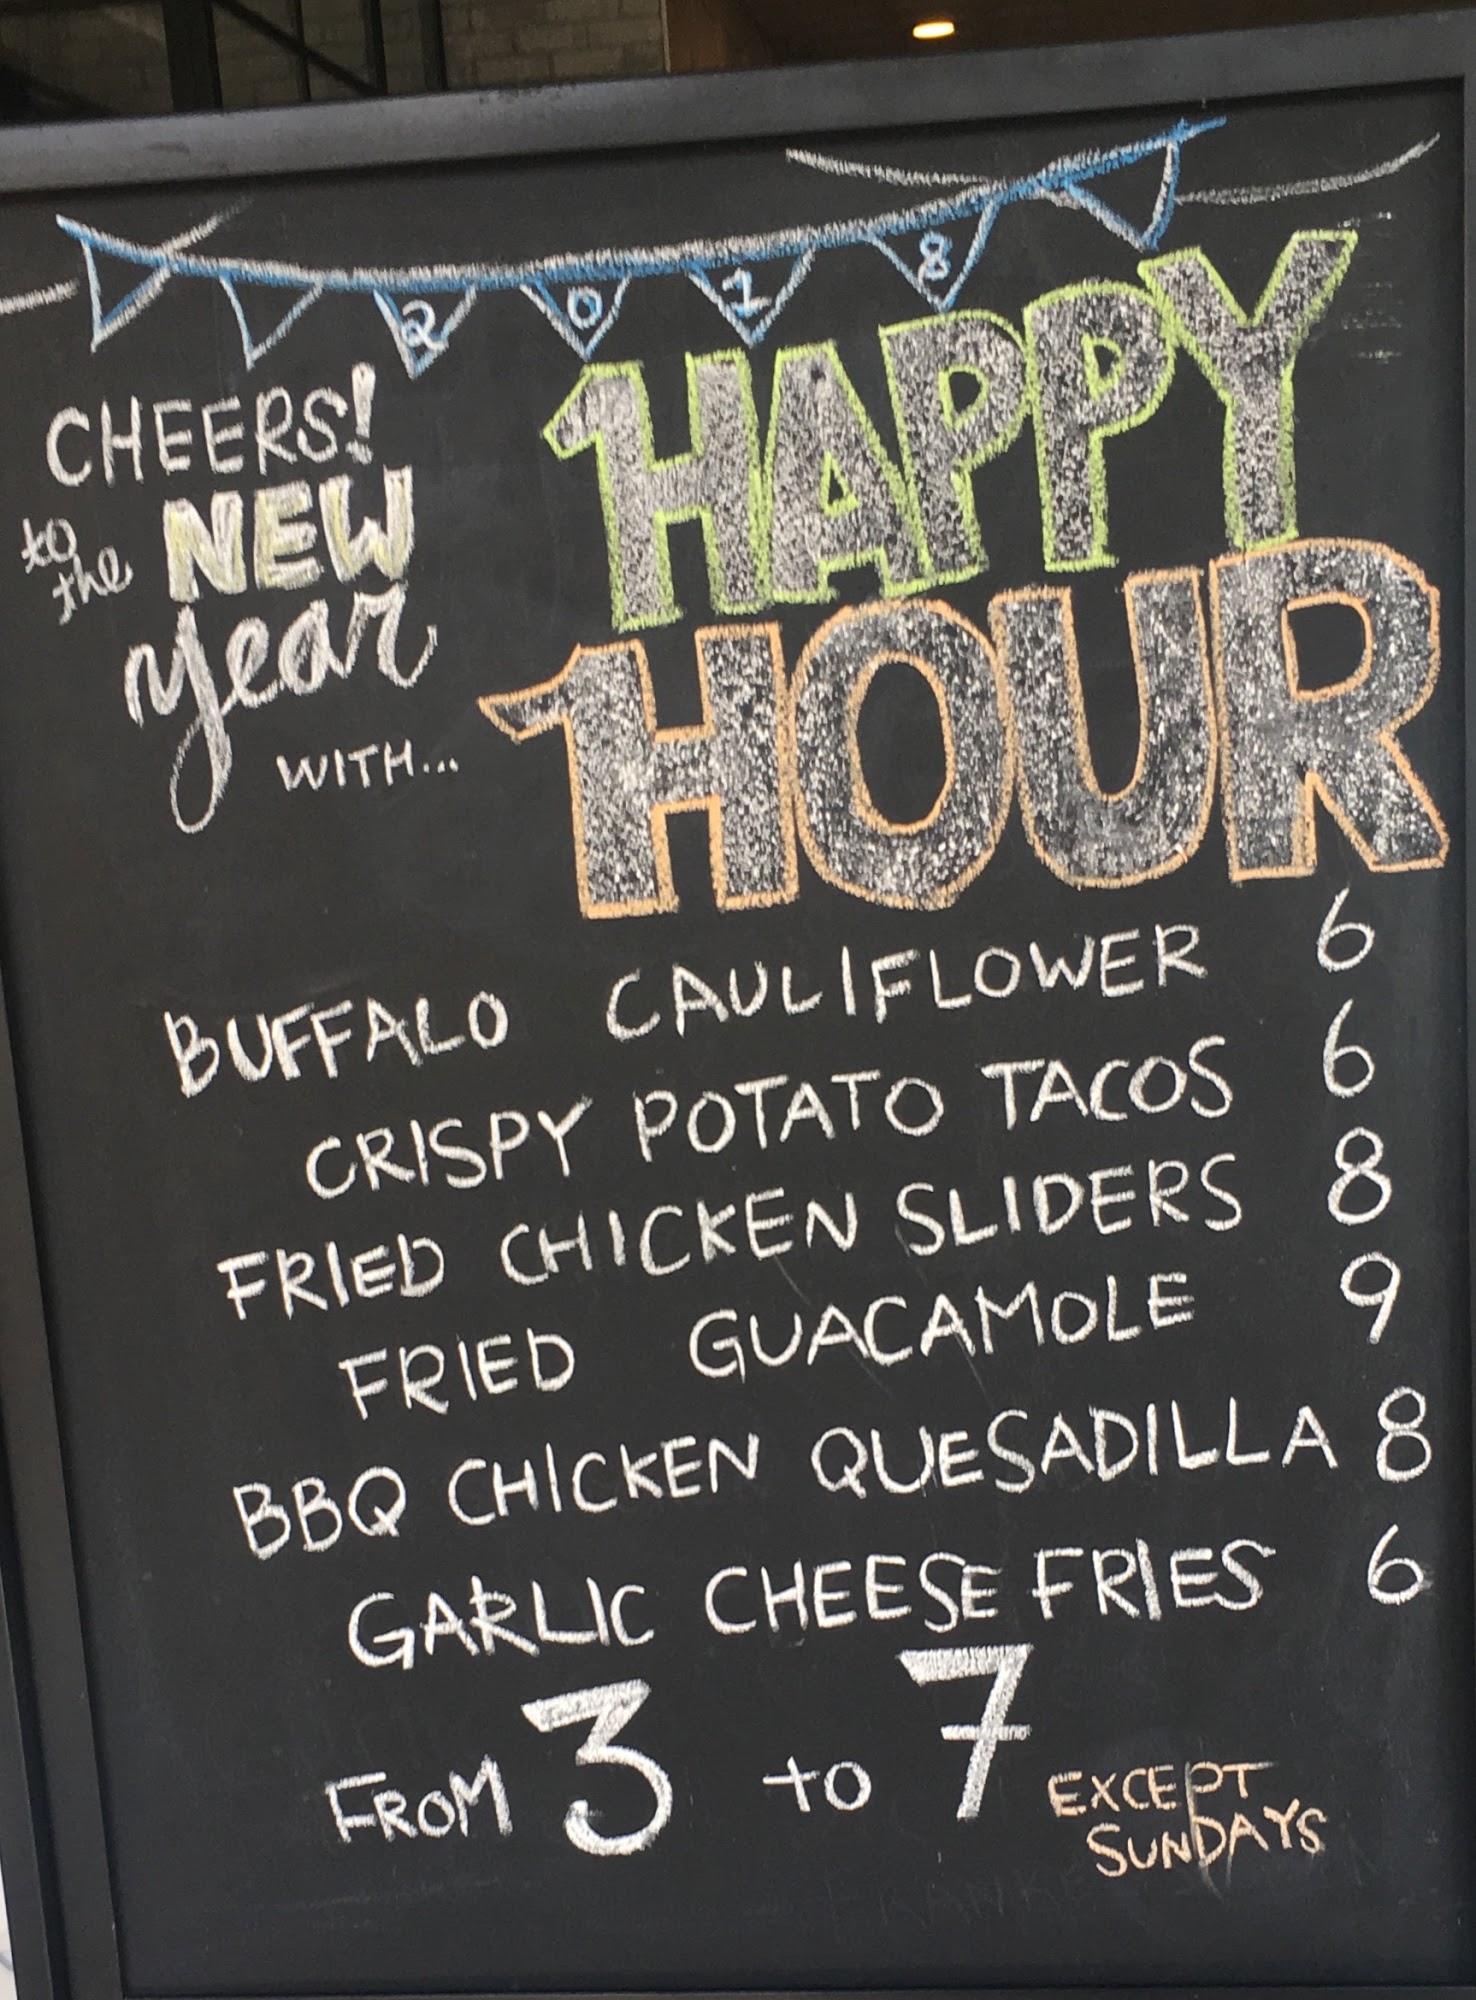 2018
CHEERS!
to the NEW
year
WITH...
HAPPY
HOUR
BUFFALO CAULIFLOWER 6
CRISPY POTATO TACOS 6
FRIED CHICKEN SLIDERS 8
FRIED GUACAMOLE 9
BBQ CHICKEN QUESADILLA 8
GARLIC CHEESE FRIES 6
FROM 3 to 7 EXCEPT
SUNDAYS